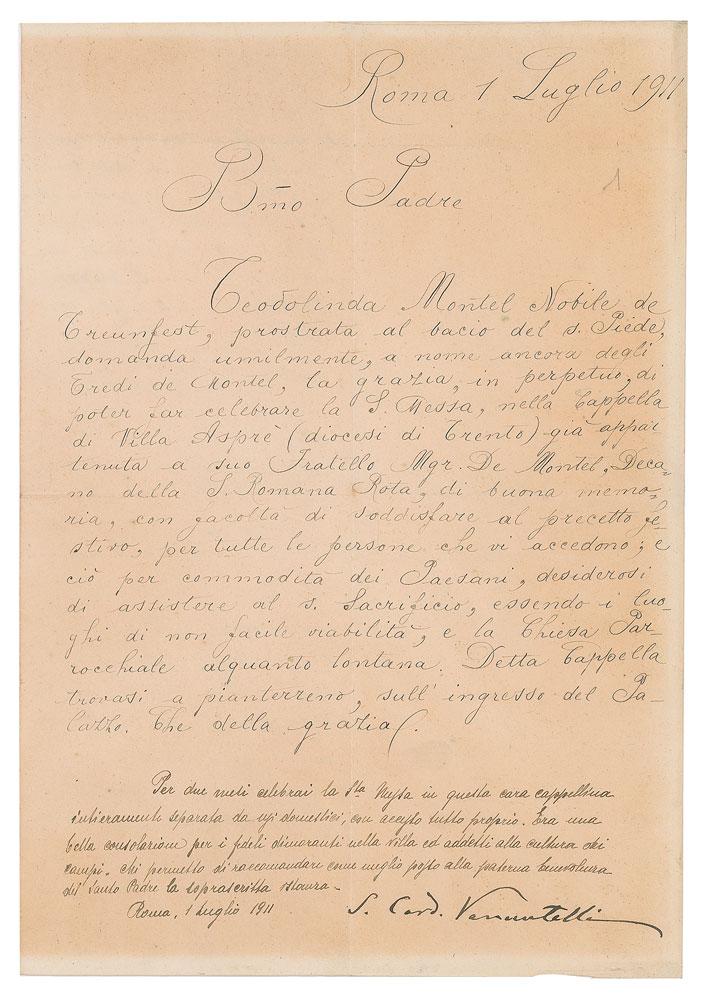 Roma 1 Luglio 1911
1
Bmõ Padre
Teodolinda Montel Nobile de
Treunfest, prostrata al bacio del s. Piede,
domanda umilmente, a nome ancora degli
Eredi de Montel, la grazia, in perpetuo, di
poter far celebrare la S. Messa, nella Cappella
di Villa Asprè (diocesi di Trento) già appar
tenuta a suo Fratello Mgr. De Montel, Deca-
no della S. Romana Rota, di buona memo-
ria, con facoltà di soddisfare al precetto fe-
stivo, per tutte le persone che vi accedono; e
ciò per commodità dei Paesani, desiderosi
di assistere al s. Sacrificio, essendo i luo-
ghi di non facile viabilità, e la Chiesa Par-
rocchiale alquanto lontana. Detta Cappella
trovasi a pianterreno, sull' ingresso del Pa-
lazzo. Che della grazia
Per due mesi celebrai la Sta Messa in questa cara cappellina
intieramente separata da usi domestici, con accesso tutto proprio. Era una
bella consolazione per i fedeli dimoranti nella villa ed addetti alla cultura dei
campi. permetto di raccomandare come meglio posso alla paterna benevolenza
del Santo Padre la soprascritta istanza -
Roma, 1 Luglio 1911
S. Card. Vannutelli